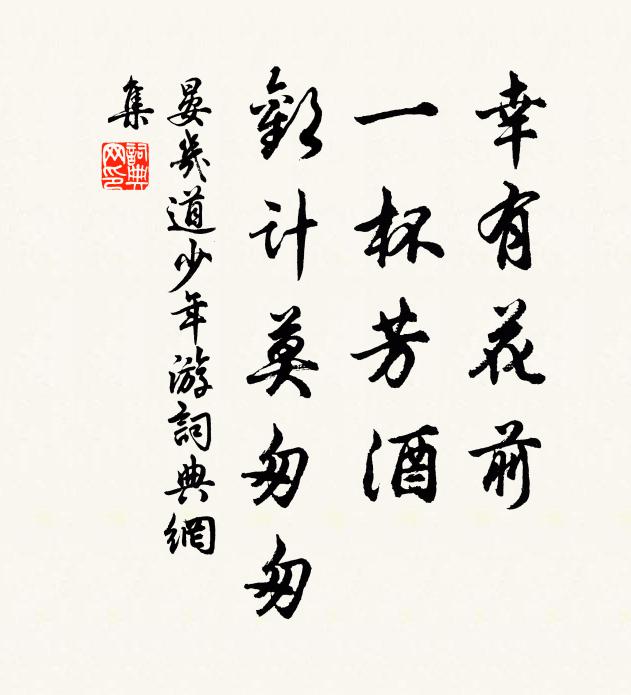 幸有花前
一杯芳酒
歡計莫匆匆
晏幾道少年游詞典網
集
詞典
网印